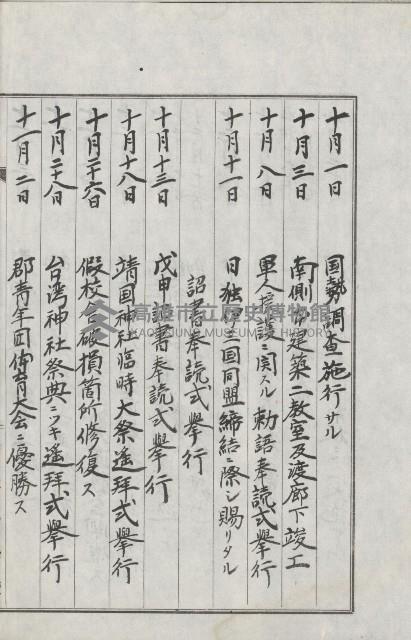 十月一日 国勢調査施行サル
十月三日 南側建築二教室及渡廊下竣工
十月八日 軍人援護ニ関スル勅語奉読式擧行
十月十一日 日独伊三国同盟締結ニ際シ賜リタル
詔書奉読式擧行
十月十三日 戊申詔書奉読式擧行
十月十八日 靖国神社臨時大祭遙拜式擧行
十月二十六日 假校舎破損箇所修復ス
十月二十八日 台湾神社祭典ニツキ遙拜式擧行
十一月二日 郡青年団体育大会ニ優勝ス
高雄市立歷史博物館
KAOHSIUNG MUSEUM OF HISTORY